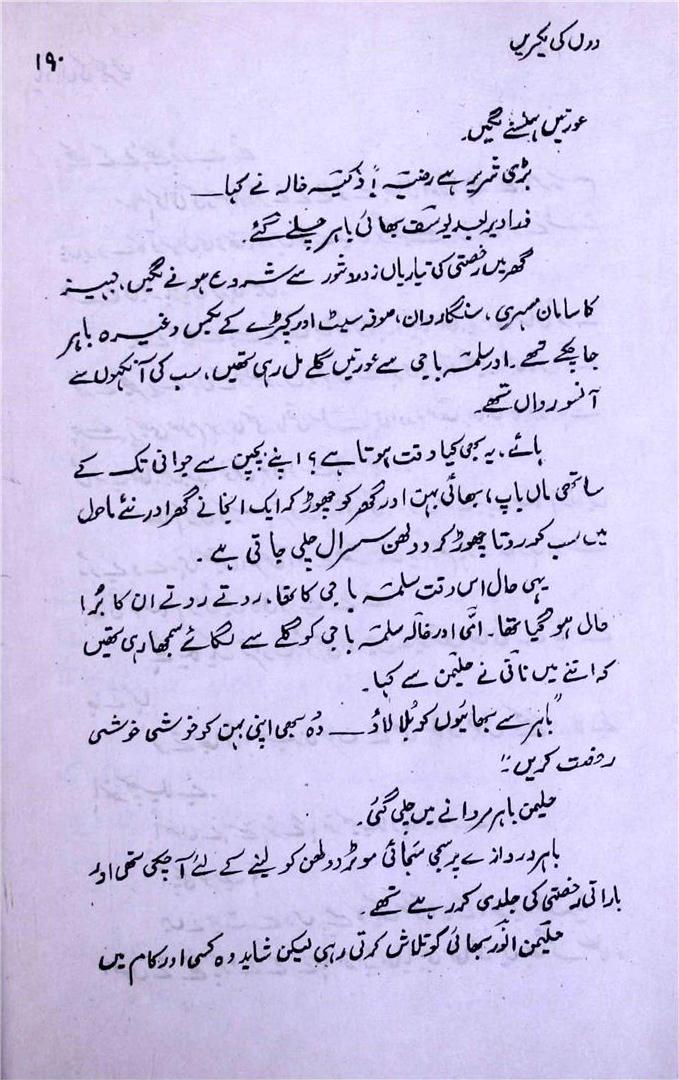 دوں کی لکیریں
۱۹۰
عورتیں ہنسنے لگیں۔
بڑی شریر ہے رضیہ! ذکیہ خالہ نے کہا ــــ
ذرا دیر بعد یوسف بھائی باہر چلے گئے۔
گھر میں رخصتی کی تیاریاں زور و شور سے شروع ہونے لگیں، جہیز
کا سامان مسہری، سنگار دان، صوفہ سیٹ اور کپڑے کے بکس وغیرہ باہر
جا چکے تھے۔ اور سلمہ باجی سے عورتیں گلے مل رہی تھیں، سب کی آنکھوں سے
آنسو رواں تھے۔
ہائے، یہ بھی کیا وقت ہوتا ہے؟ اپنے بچپن سے جوانی تک کے
ساتھی ماں باپ، بھائی بہن اور گھر کو چھوڑ کر ایک انجانے گھر اور نئے ماحول
میں سب کو روتا چھوڑ کر دولھن سسرال چلی جاتی ہے۔
یہی حال اس وقت سلمہ باجی کا تھا، روتے روتے ان کا بُرا
حال ہو گیا تھا۔ امّی اور خالہ سلمہ باجی کو گلے سے لگائے سمجھا رہی تھیں
کہ اتنے میں نانی نے حلیمن سے کہا۔
"باہر سے بھائیوں کو بُلا لاؤ ــــ وُہ بھی اپنی بہن کو خوشی خوشی
رخصت کریں۔"
حلیمن باہر مردانے میں چلی گئی۔
باہر دروازے پر سجی سجائی موٹر دولھن کو لینے کے لئے آ چکی تھی اور
باراتی رخصتی کی جلدی کر رہے تھے۔
حلیمن انور بھائی کو تلاش کرتی رہی لیکن شاید وہ کسی اور کام میں